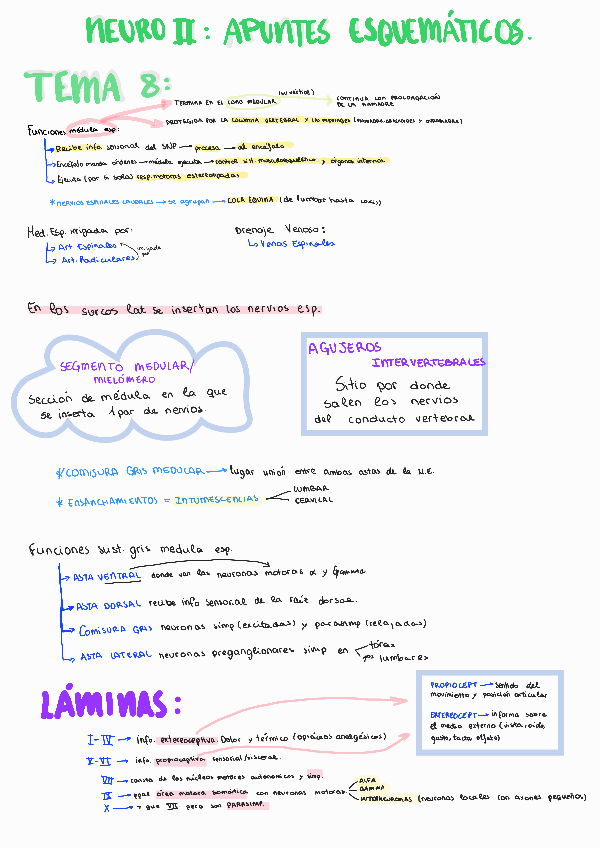 NEURO II: APUNTES ESQUEMÁTICOS.
TEMA 8:
TERMINA EN EL CONO MEDULAR
CONTINUA CON PROLONGACIÓN
DE LA PIAMADRE
Funciones médula esp:
PROTEGIDA POR LA COLUMNA VERTEBRAL Y LAS MENINGES
Recibe info sensorial del SNP → procesa → al encéfalo
Encéfalo manda órdenes → médula ejecuta → control sist. musculoesquelético y órganos internos
Ejecuta (por si sola) resp. motoras estereotipadas
* NERVIOS ESPINALES CAUDALES → se agrupan → COLA EQUINA (de lumbar hasta coxis)
Med. Esp. irrigada por:
Drenaje Venoso:
Art Espinales
irrigada por
Venas Espinales
Art. Radiculares
En los surcos lat se insertan los nervios esp.
SEGMENTO MEDULAR/
MIELÓMERO
Sección de médula en la que
se inserta 1 par de nervios.
AGUJEROS
INTERVERTEBRALES
Sitio por donde
salen los nervios
del conducto vertebral
* COMISURA GRIS MEDULAR → lugar unión entre ambas astas de la M.E.
* ENSANCHAMIENTOS = INTUMESCENCIAS
LUMBAR
CERVICAL
Funciones sust. gris medula esp.
→ ASTA VENTRAL donde van las neuronas motoras α y gamma
→ ASTA DORSAL recibe info sensorial de la raíz dorsal.
→ Comisura GRIS neuronas simp (excitadas) y parasimp (relajadas)
→ ASTA LATERAL neuronas preganglionares simp en
tórax
lumbares
LÁMINAS:
PROPIOCEPT → sentido del
movimiento y posición articular
EXTEROCEPT → informa sobre
el medio externo (vista, oído,
gusto, tacto, olfato)
I-IV → info. exteroceptiva. Dolor y térmico (opiáceos analgésicos)
V-VI → info. propioceptiva sensorial/visceral.
VII → consta de los núcleos motores autonómicos y simp.
IX → ppal área motora somática con neuronas motoras.
ALFA
GAMMA
INTERNEURONAS (neuronas locales con axones pequeños)
X → = que VII pero son PARASIMP.